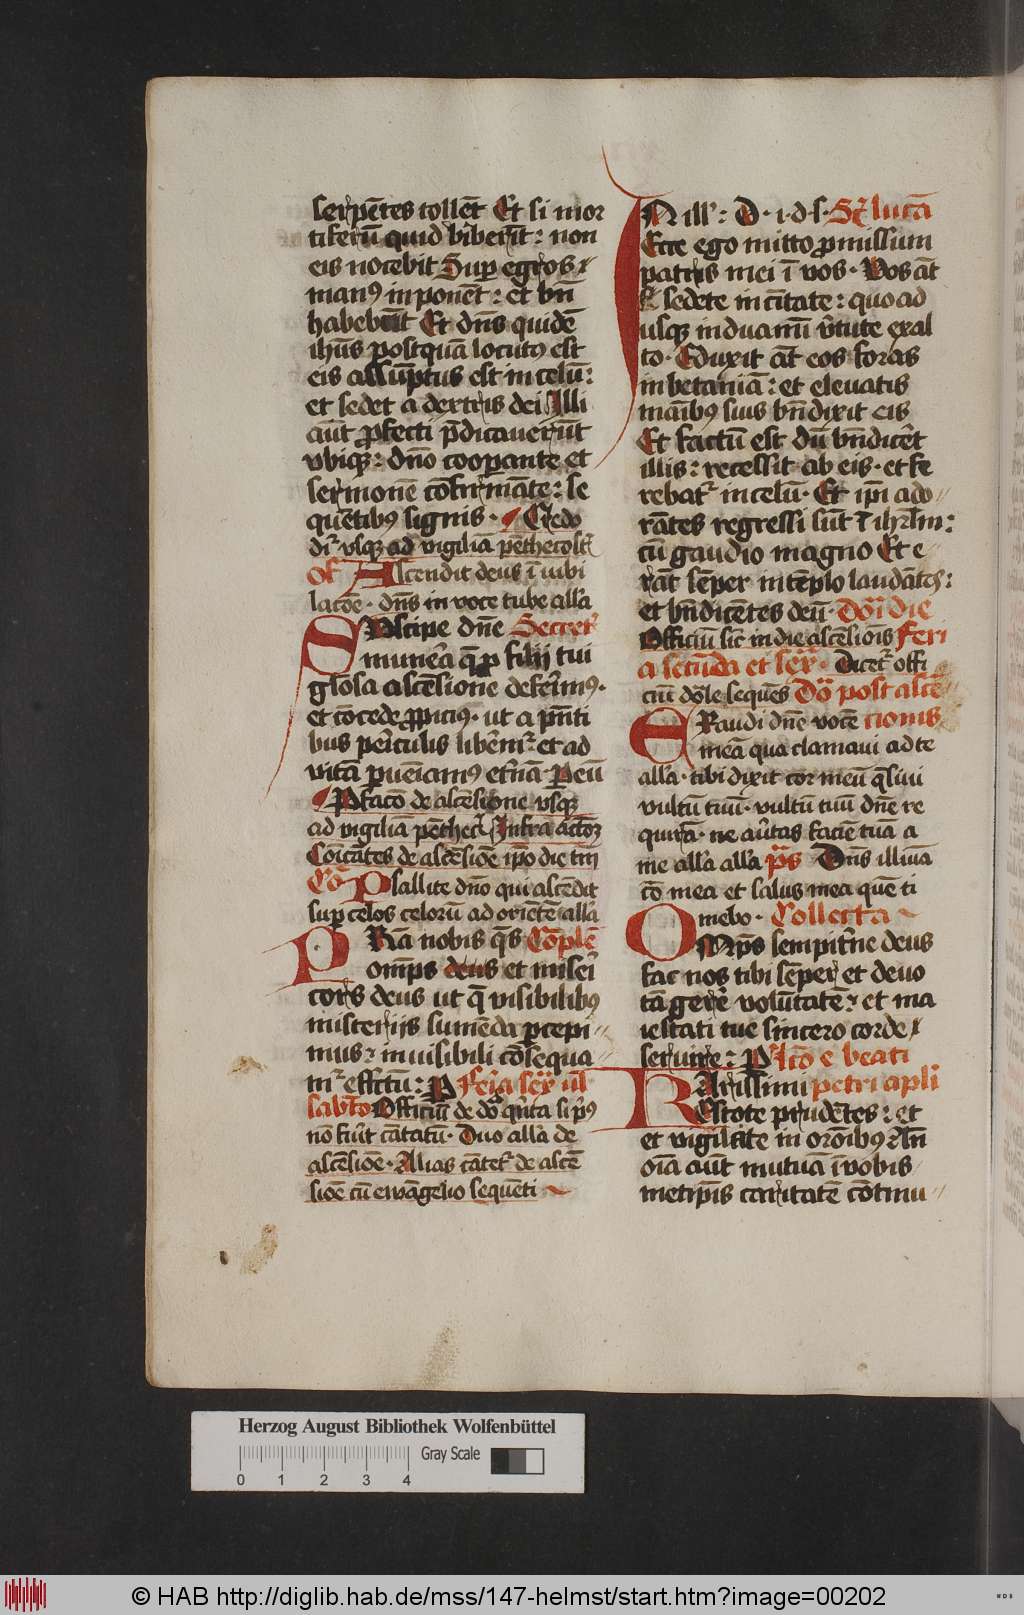 serpētes tollēt Et si mor
tiferū quid biberīt: non
eis nocebit Sup egros
man⁹ inponēt: et bn̄
habebūt Et dn̄s quidē
ihūs postquā locut⁹ est
eis assūptus est in celū:
et sedet a dextris dei Illi
aūt ꝓfecti p̄dicauerūt
vbiqꝫ: dn̄o cooꝑante et
sermonē cōfirmāte: se
quētib⁹ signis · Credo
dr̄ vsqꝫ ad vigiliā pēthecost̄
of Ascendit deus ī iubi
lacōe · dn̄s in voce tube all'a
SUscipe dn̄e Secret'
munera q̄ ꝓ filij tui
gl'osa ascēsione deferim⁹·
et cōcede ꝓpici⁹· ut a p̄nti
bus ꝑiculis liberem' et ad
vitā ꝑueniam⁹ et'nā· Peū
Pfacō de ascēsione vsqꝫ
ad vigiliā pēthec' Infra actōꝫ
Coīcātes de ascēsiōe ip̄o die tm̄
Cō Psallite dn̄o qui ascēdit
suꝑ celos celorū ad oriētē all'a
PRā nobis q̄s Cōplē
om̄ps deus et miseri
cors deus ut q̄ visibilib⁹
misterijs sumēda ꝑcepi
mus: inuisibili cōsequa
m' effc̄tū: P Feria sex' ul'
sabb'to Officiū de do' q̄nta si pri⁹
nō fuīt cātatū· Duo all'a de
ascēsiōe· Alias cātet' de ascē
siōe cū ewāgelio sequēti
IN ill': D· i·d·s· Sc' lucā
Ecce ego mitto ꝓmissum
patris mei ī vos· Vos āt
sedete in ciuitate: quo ad
usqꝫ induamī v'tute ex al
to· Eduxit āt eos foras
in betaniā: et eleuatis
manib⁹ suis bn̄dixit eis
Et factū est dū bn̄dicēt
illis: recessit ab eis· et fe
rebat' in celū· Et ip̄i ado
rātes regressi sūt ī ihrl̄m:
cū gaudio magno Et e
rāt sēper in tēplo laudātes:
et bn̄dicētes deū· Do'i die
Officiū sic' in die ascēsiois Feri
a secūda et sex'· Dicet' offi
ciū dōle sequēs Do' post ascē
ERaudi dn̄e vocē cionis
meā qua clamaui ad te
all'a· tibi dixit cor meū q̄siui
vultū tuū· vultū tuū dn̄e re
quirā· ne au'tas faciē tuā a
me all'a all'a p̄s Dn̄s illuīa
cō mea et salus mea quē ti
mebo· Collecta
OMp̄s sempit'ne deus
fac nos tibi sēper et deuo
tā gerē volūtatē: et ma
iestati tue sincero corde
seruire: P Lcō e beati
KArissimi petri apl'i
Estote prudētes: et
et vigilate in orōib⁹ An̄
oīa aūt mutuā ī vobis
metip̄is caritatē cōtinu
Herzog August Bibliothek Wolfenbüttel
Gray Scale
0 1 2 3 4
© HAB http://diglib.hab.de/mss/147-helmst/start.htm?image=00202